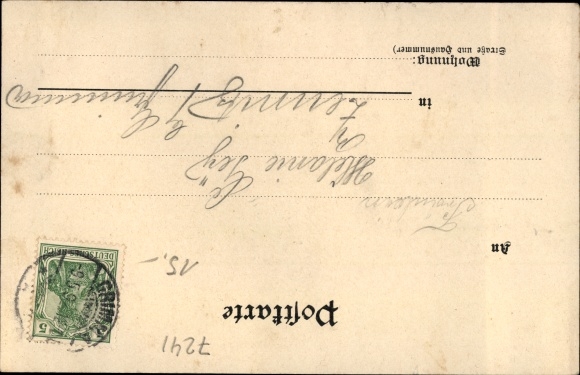 7241
Postkarte
15.-
DEUTSCHES REICH
5
GRIMMA
An
Fräulein
Melanie
in
Grimma
Wohnung:
(Straße und Hausnummer)